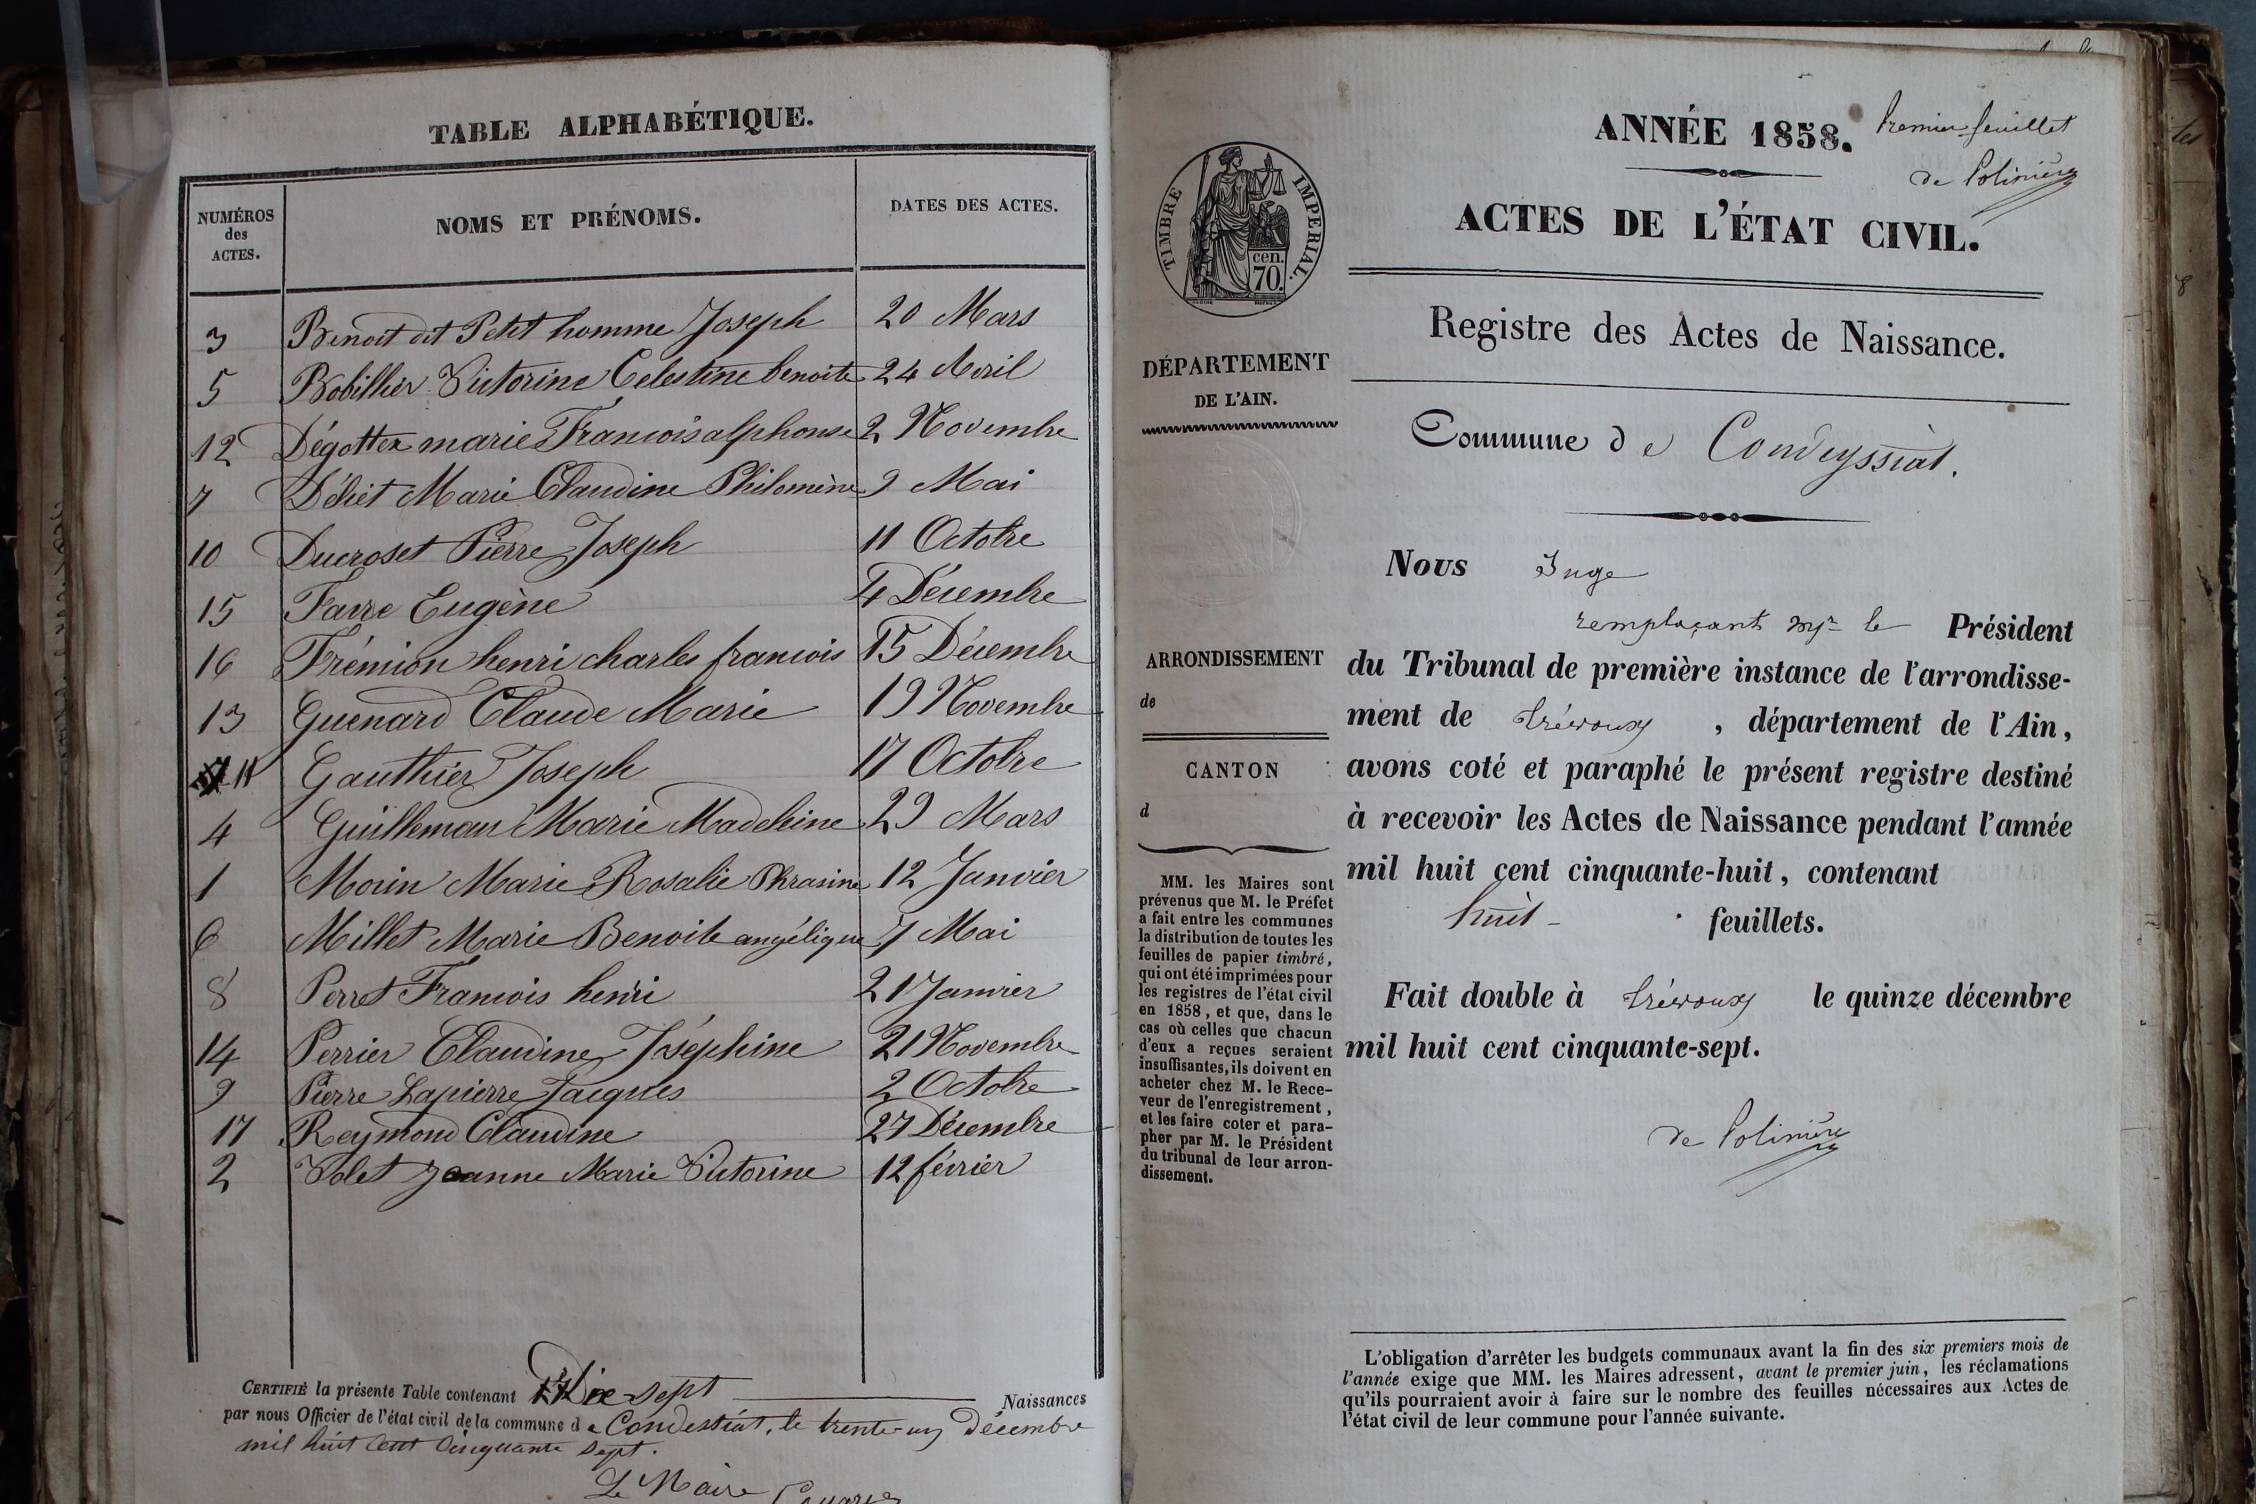 TABLE ALPHABÉTIQUE.
NUMÉROS des ACTES. NOMS ET PRÉNOMS. DATES DES ACTES.
3 Benoit dit Petit homme Joseph 20 Mars
5 Bobillier Victorine Celestine benoite 24 Avril
12 Dégottex marie Francois alphonse 2 Novembre
7 Déliet Marie Claudine Philomène 9 Mai
10 Ducroset Pierre Joseph 11 Octobre
15 Favre Eugène 4 Décembre
16 Frémion henri charles francois 15 Décembre
13 Guenard Claude Marie 19 Novembre
11 Gauthier Joseph 17 Octobre
4 Guilleman Marie Madeleine 29 Mars
1 Morin Marie Rosalie Phrasine 12 Janvier
6 Millet Marie Benoite angélique 7 Mai
8 Perret Francois henri 21 Janvier
14 Perrier Claudine Joséphine 21 Novembre
9 Pierre Lapierre Jacques 2 Octobre
17 Reymond Claudine 27 Décembre
2 Volet Jeanne Marie Victorine 12 février
CERTIFIÉ la présente Table contenant Dix sept Naissances
par nous Officier de l'état civil de la commune d e Condessiat, le trente-un Décembre
mil huit Cent Cinquante Sept.
Le Maire
ANNÉE 1858.
Premier feuillet
de Polinière
ACTES DE L'ÉTAT CIVIL.
TIMBRE IMPERIAL.
cen.
70.
Registre des Actes de Naissance.
Commune d e Condeyssiat.
DÉPARTEMENT
DE L'AIN.
ARRONDISSEMENT
de
CANTON
d
MM. les Maires sont
prévenus que M. le Préfet
a fait entre les communes
la distribution de toutes les
feuilles de papier timbré,
qui ont été imprimées pour
les registres de l'état civil
en 1858, et que, dans le
cas où celles que chacun
d'eux a reçues seraient
insuffisantes, ils doivent en
acheter chez M. le Rece-
veur de l'enregistrement,
et les faire coter et para-
pher par M. le Président
du tribunal de leur arron-
dissement.
Nous Juge
remplaçant Mr le Président
du Tribunal de première instance de l'arrondisse-
ment de trévoux, département de l'Ain,
avons coté et paraphé le présent registre destiné
à recevoir les Actes de Naissance pendant l'année
mil huit cent cinquante-huit, contenant
huit - feuillets.
Fait double à trévoux le quinze décembre
mil huit cent cinquante-sept.
de Polinière
L'obligation d'arrêter les budgets communaux avant la fin des six premiers mois de
l'année exige que MM. les Maires adressent, avant le premier juin, les réclamations
qu'ils pourraient avoir à faire sur le nombre des feuilles nécessaires aux Actes de
l'état civil de leur commune pour l'année suivante.